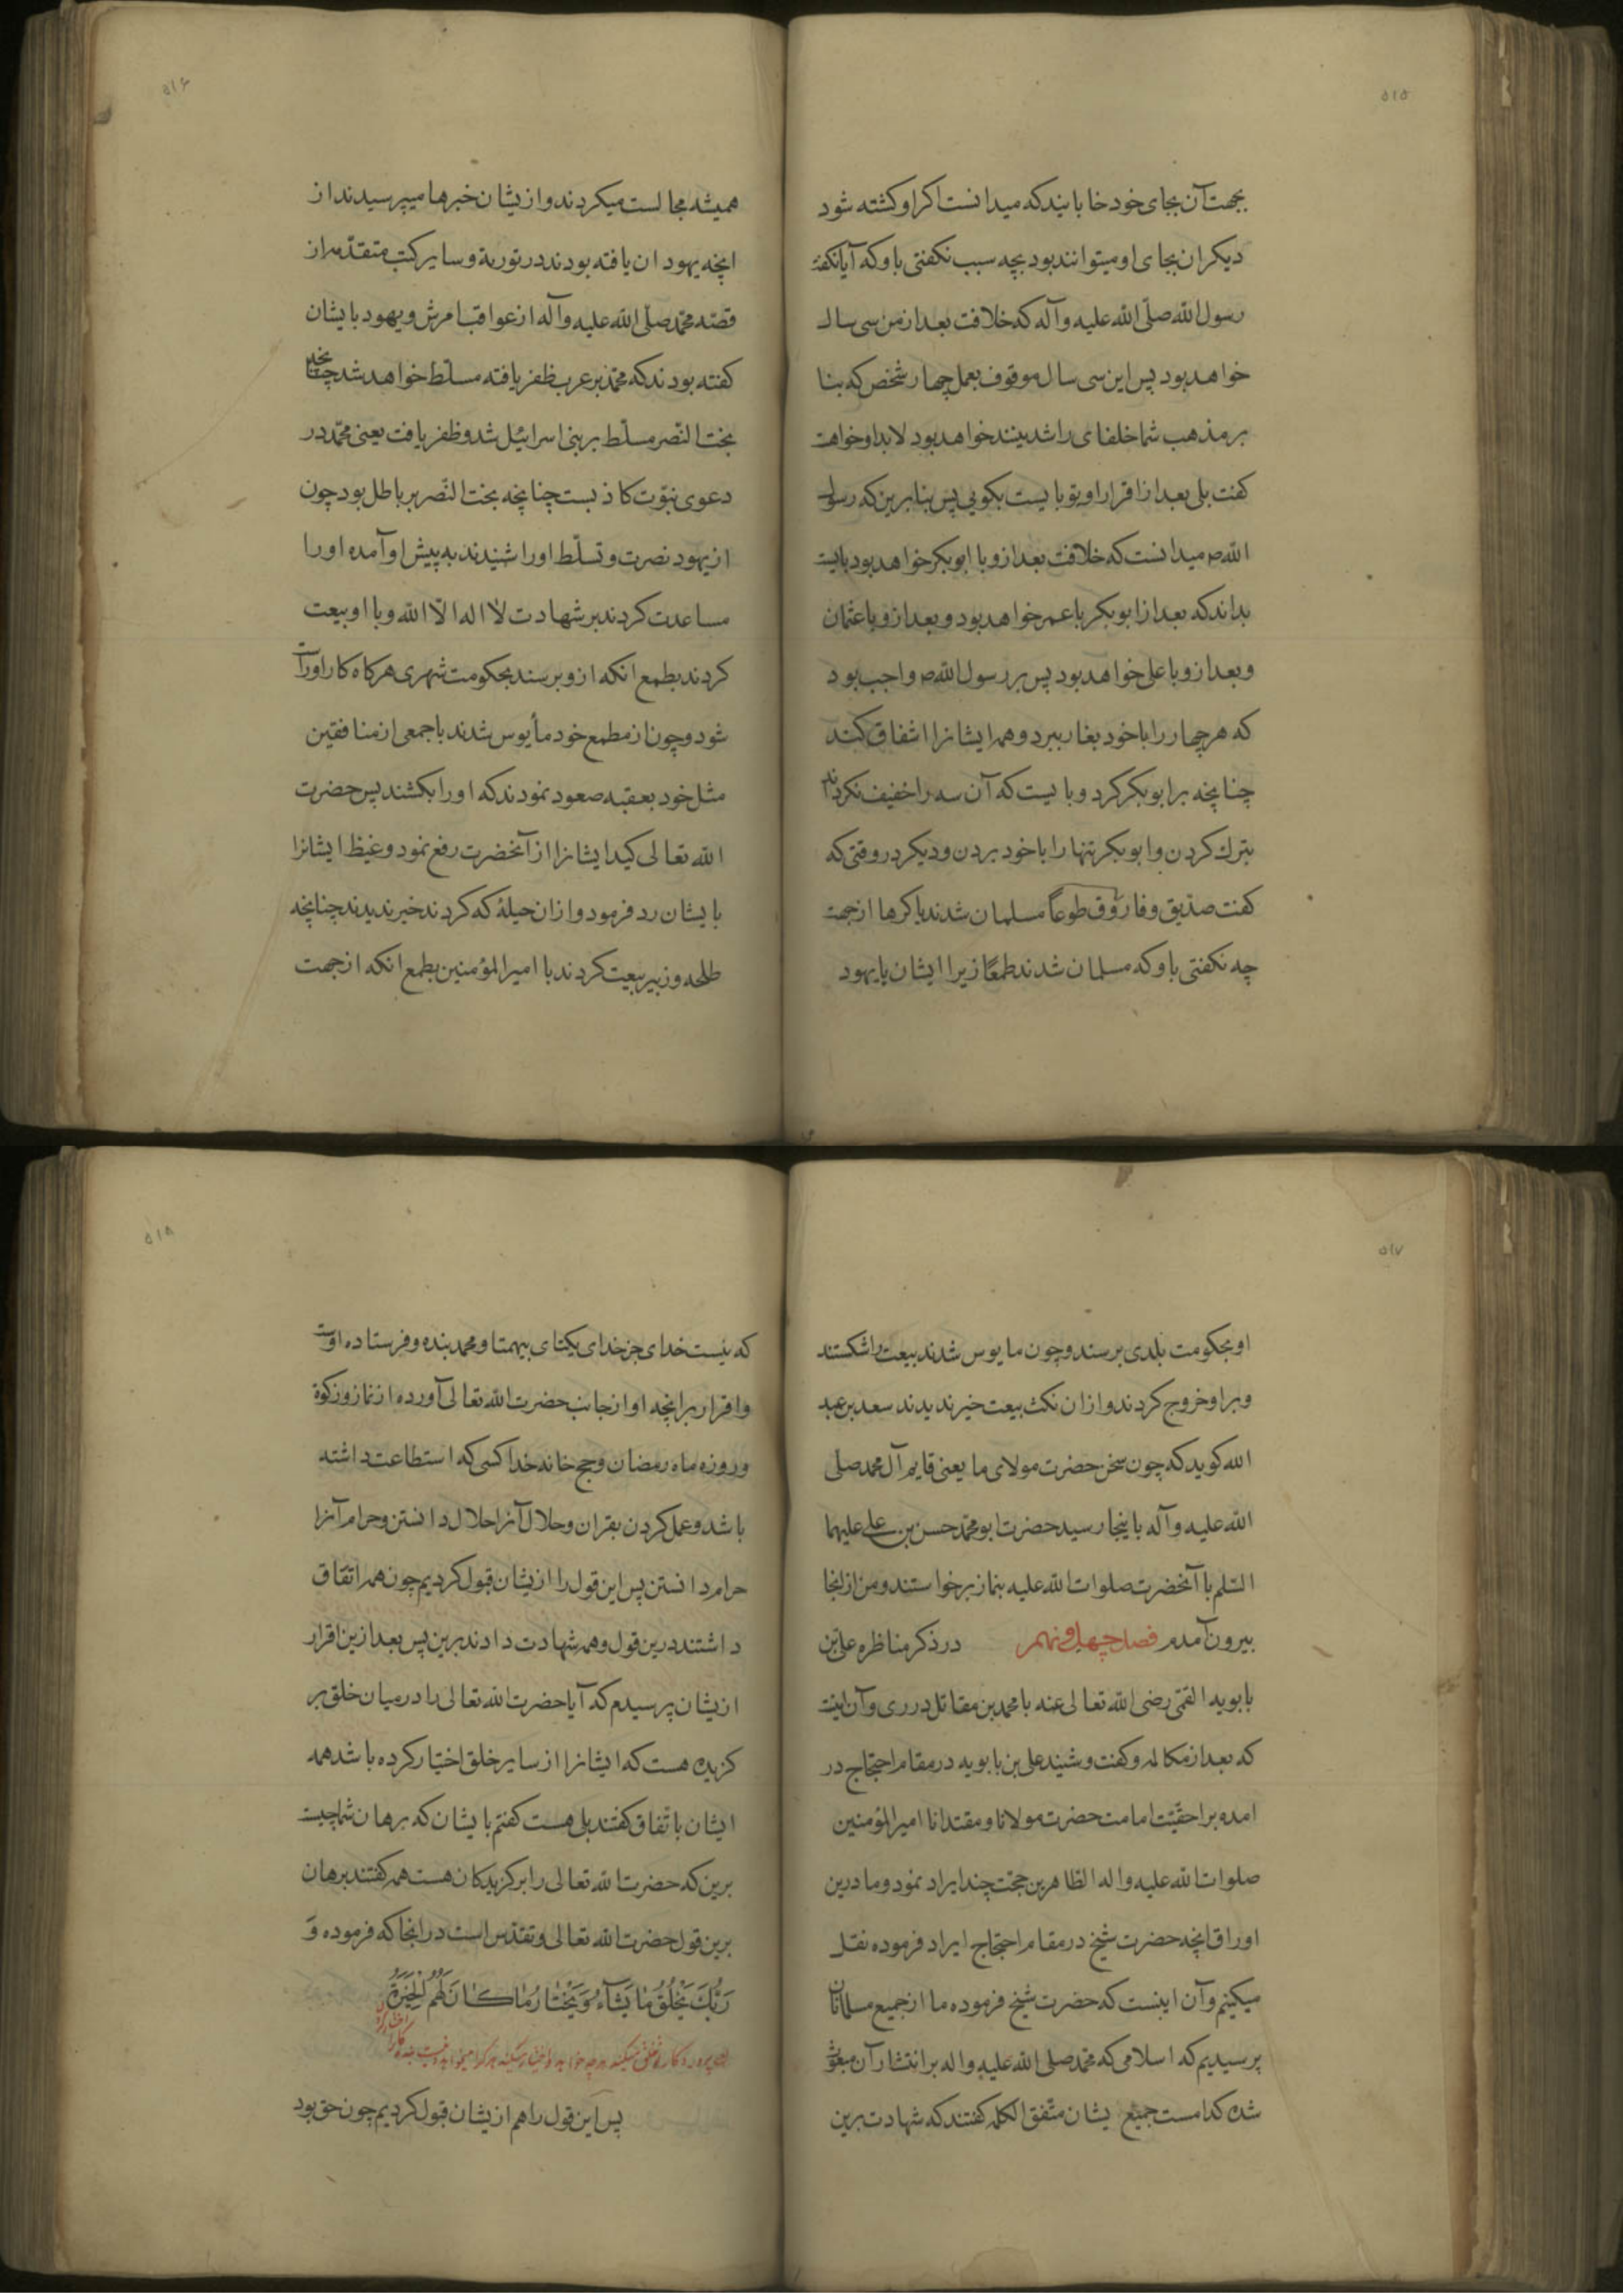 ۵۱۵
بجهت آن بجای خود خابانید که میدانست اکر او کشته شود
دیکران بجای او میتوانند بود بچه سبب نکفتی باو که آیا نکفته
رسول الله صلّی الله علیه وآله که خلافت بعد از من سی سال
خواهد بود پس این سی سال موقوف بعمل چهار شخص که بنا
بر مذهب شما خلفای راشدینند خواهد بود لابد او خواهت
کفت بلی بعد از اقرار او بتو بایست بکویی پس بنا برین که رسول
الله ص میدانست که خلافت بعد ازو با ابوبکر خواهد بود بایست
بداند که بعد از ابوبکر با عمر خواهد بود و بعد ازو با عثمان
و بعد ازو با علی خواهد بود پس بر رسول الله ص واجب بود
که هر چهار را با خود بغار ببرد و همه ایشانرا اشفاق کند
چنانچه بر ابوبکر کرد و بایست که آن سه را خفیف نکرداند
بترك کردن و ابوبکر تنها را با خود بردن و دیکر در وقتی که
کفت صدّیق و فاروق طوعاً مسلمان شدند یا کرها از جهت
چه نکفتی باو که مسلمان شدند طمعًا زیرا ایشان با یهود
۵۱۶
همیشه مجالست میکردند و ازیشان خبرها میپرسیدند از
انچه یهود ان یافته بودند در توریة و سایر کتب متقدّمه از
قصّه محمّد صلّی الله علیه وآله از عواقب امرش و یهود بایشان
کفته بودند که محمّد بر عرب ظفر یافته مسلّط خواهد شد چنانچه
بخت النّصر مسلّط بر بنی اسرائیل شد و ظفر یافت یعنی محمّد در
دعوی نبوّت کاذبست چنانچه بخت النّصر بر باطل بود چون
از یهود نصرت و تسلّط او را شنیدند به پیش او آمده او را
مساعدت کردند بر شهادت لا اله الّا الله و با او بیعت
کردند بطمع انکه ازو برسند بحکومت شهری هرکاه کار او راست
شود و چون از مطمع خود مأیوس شدند با جمعی از منافقین
مثل خود بعقبه صعود نمودند که او را بکشند پس حضرت
الله تعالی کید ایشانرا از آنحضرت رفع نمود و غیظ ایشانرا
بایشان رد فرمود و ازان حیلهٔ که کردند خیر ندیدند چنانچه
طلحه و زبیر بیعت کردند با امیرالمؤمنین بطمع انکه از جهت
۵۱۷
او بحکومت بلدی برسند و چون مایوس شدند بیعت را شکستند
و بر او خروج کردند و ازان نکث بیعت خیر ندیدند سعد بن عبد
الله کوید که چون سخن حضرت مولای ما یعنی قایم آل محمد صلی
الله علیه وآله باینجا رسید حضرت ابو محمّد حسن بن علی علیهما
السّلم با آنحضرت صلوات الله علیه بنماز برخواستند و من ازانجا
بیرون آمدم فصل چهل و نهم در ذکر مناظره علی بن
بابویه القمّی رضی الله تعالی عنه با محمد بن مقاتل در ری و آن اینست
که بعد از مکالمه و کفت و شنید علی بن بابویه در مقام احتجاج در
امده بر احقّیّت امامت حضرت مولانا و مقتدانا امیرالمؤمنین
صلوات الله علیه واله الطّاهرین حجّت چند ایراد نمود و ما درین
اوراق انچه حضرت شیخ در مقام احتجاج ایراد فرموده نقل
میکنیم و آن اینست که حضرت شیخ فرموده ما از جمیع مسلمانان
پرسیدیم که اسلامی که محمّد صلی الله علیه واله بر انتشار آن مبعوث
شده کدامست جمیع یشان متّفق الکلمه کفتند که شهادت برین
۵۱۸
که نیست خدای جز خدای یکتای بیهمتا و محمد بنده و فرستاده اوست
و اقرار برانچه او از جانب حضرت الله تعالی آورده از نماز و زکوة
و روزه ماه رمضان و حج خانه خدا کسی که استطاعت داشته
باشد و عمل کردن بقران و حلال آنرا حلال دانستن و حرام آنرا
حرام دانستن پس این قول را ازیشان قبول کردیم چون همه اتفاق
داشتند درین قول و همه شهادت دادند برین پس بعد ازین اقرار
ازیشان پرسیدم که آیا حضرت الله تعالی را در میان خلق بر
کزیده هست که ایشانرا از سایر خلق اختیار کرده باشد همه
ایشان باتّفاق کفتند بلی هست کفتم بایشان که برهان شما چیست
برین که حضرت الله تعالی را برکزیدکان هست همه کفتند برهان
برین قول حضرت الله تعالی و تقدّس است در انجا که فرموده وَ
رَبُّكَ يَخْلُقُ مَا يَشَآءُ وَيَخْتَارُ مَا كَانَ لَهُمُ الْخِيَرَةُ
پروردکار خلق میکند هر چه خواهد و اختیار میکند هر کرا میخواهد نیست بنده کانرا اختیار
پس این قول را هم ازیشان قبول کردیم چون حق بود